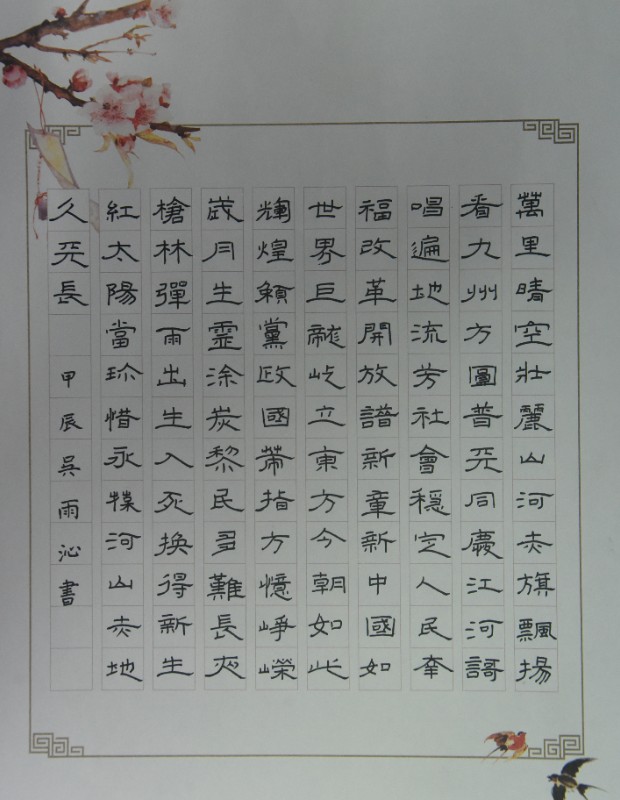 萬里晴空壯麗山河赤旗飄揚
看九州方圓普天同慶江河謌
唱遍地流芳社會穩定人民幸
福改革開放譜新章新中國如
世界巨龍屹立東方今朝如此
輝煌賴黨政國策指方憶崢嶸
歲月生靈涂炭黎民多難長夾
槍林彈雨出生入死換得新生
紅太陽當珍惜永葆河山赤地
久天長 甲辰吳雨沁書